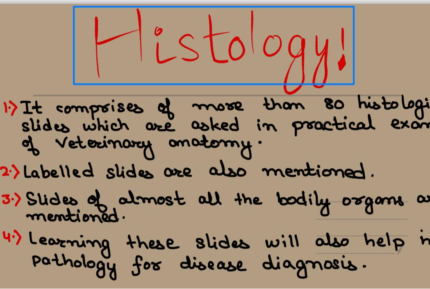 Histology!
1.) It comprises of more than 80 histologi
slides which are asked in practical exam
of Veterinary anatomy.
2.) Labelled slides are also mentioned.
3.) Slides of almost all the bodily organs a
mentioned.
4.) Learning these slides will also help in
pathology for disease diagnosis.